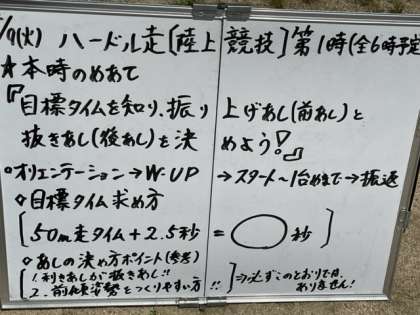 /9(火) ハードル走[陸上競技]第1時(全6時予定
☆本時のめあて
『目標タイムを知り、振り上げあし(前あし)と
抜きあし(後あし)を決めよう!』
○オリエンテーション→W-UP→スタート〜1台めまで→振返
◇目標タイム求め方
[50m走タイム+2.5秒=◯秒]
◇あしの決め方ポイント(参考)
[1.利きあしが抜きあし!!
2.前傾姿勢をつくりやすい方!!]⇒必ずこのとおりでは、
ありません!